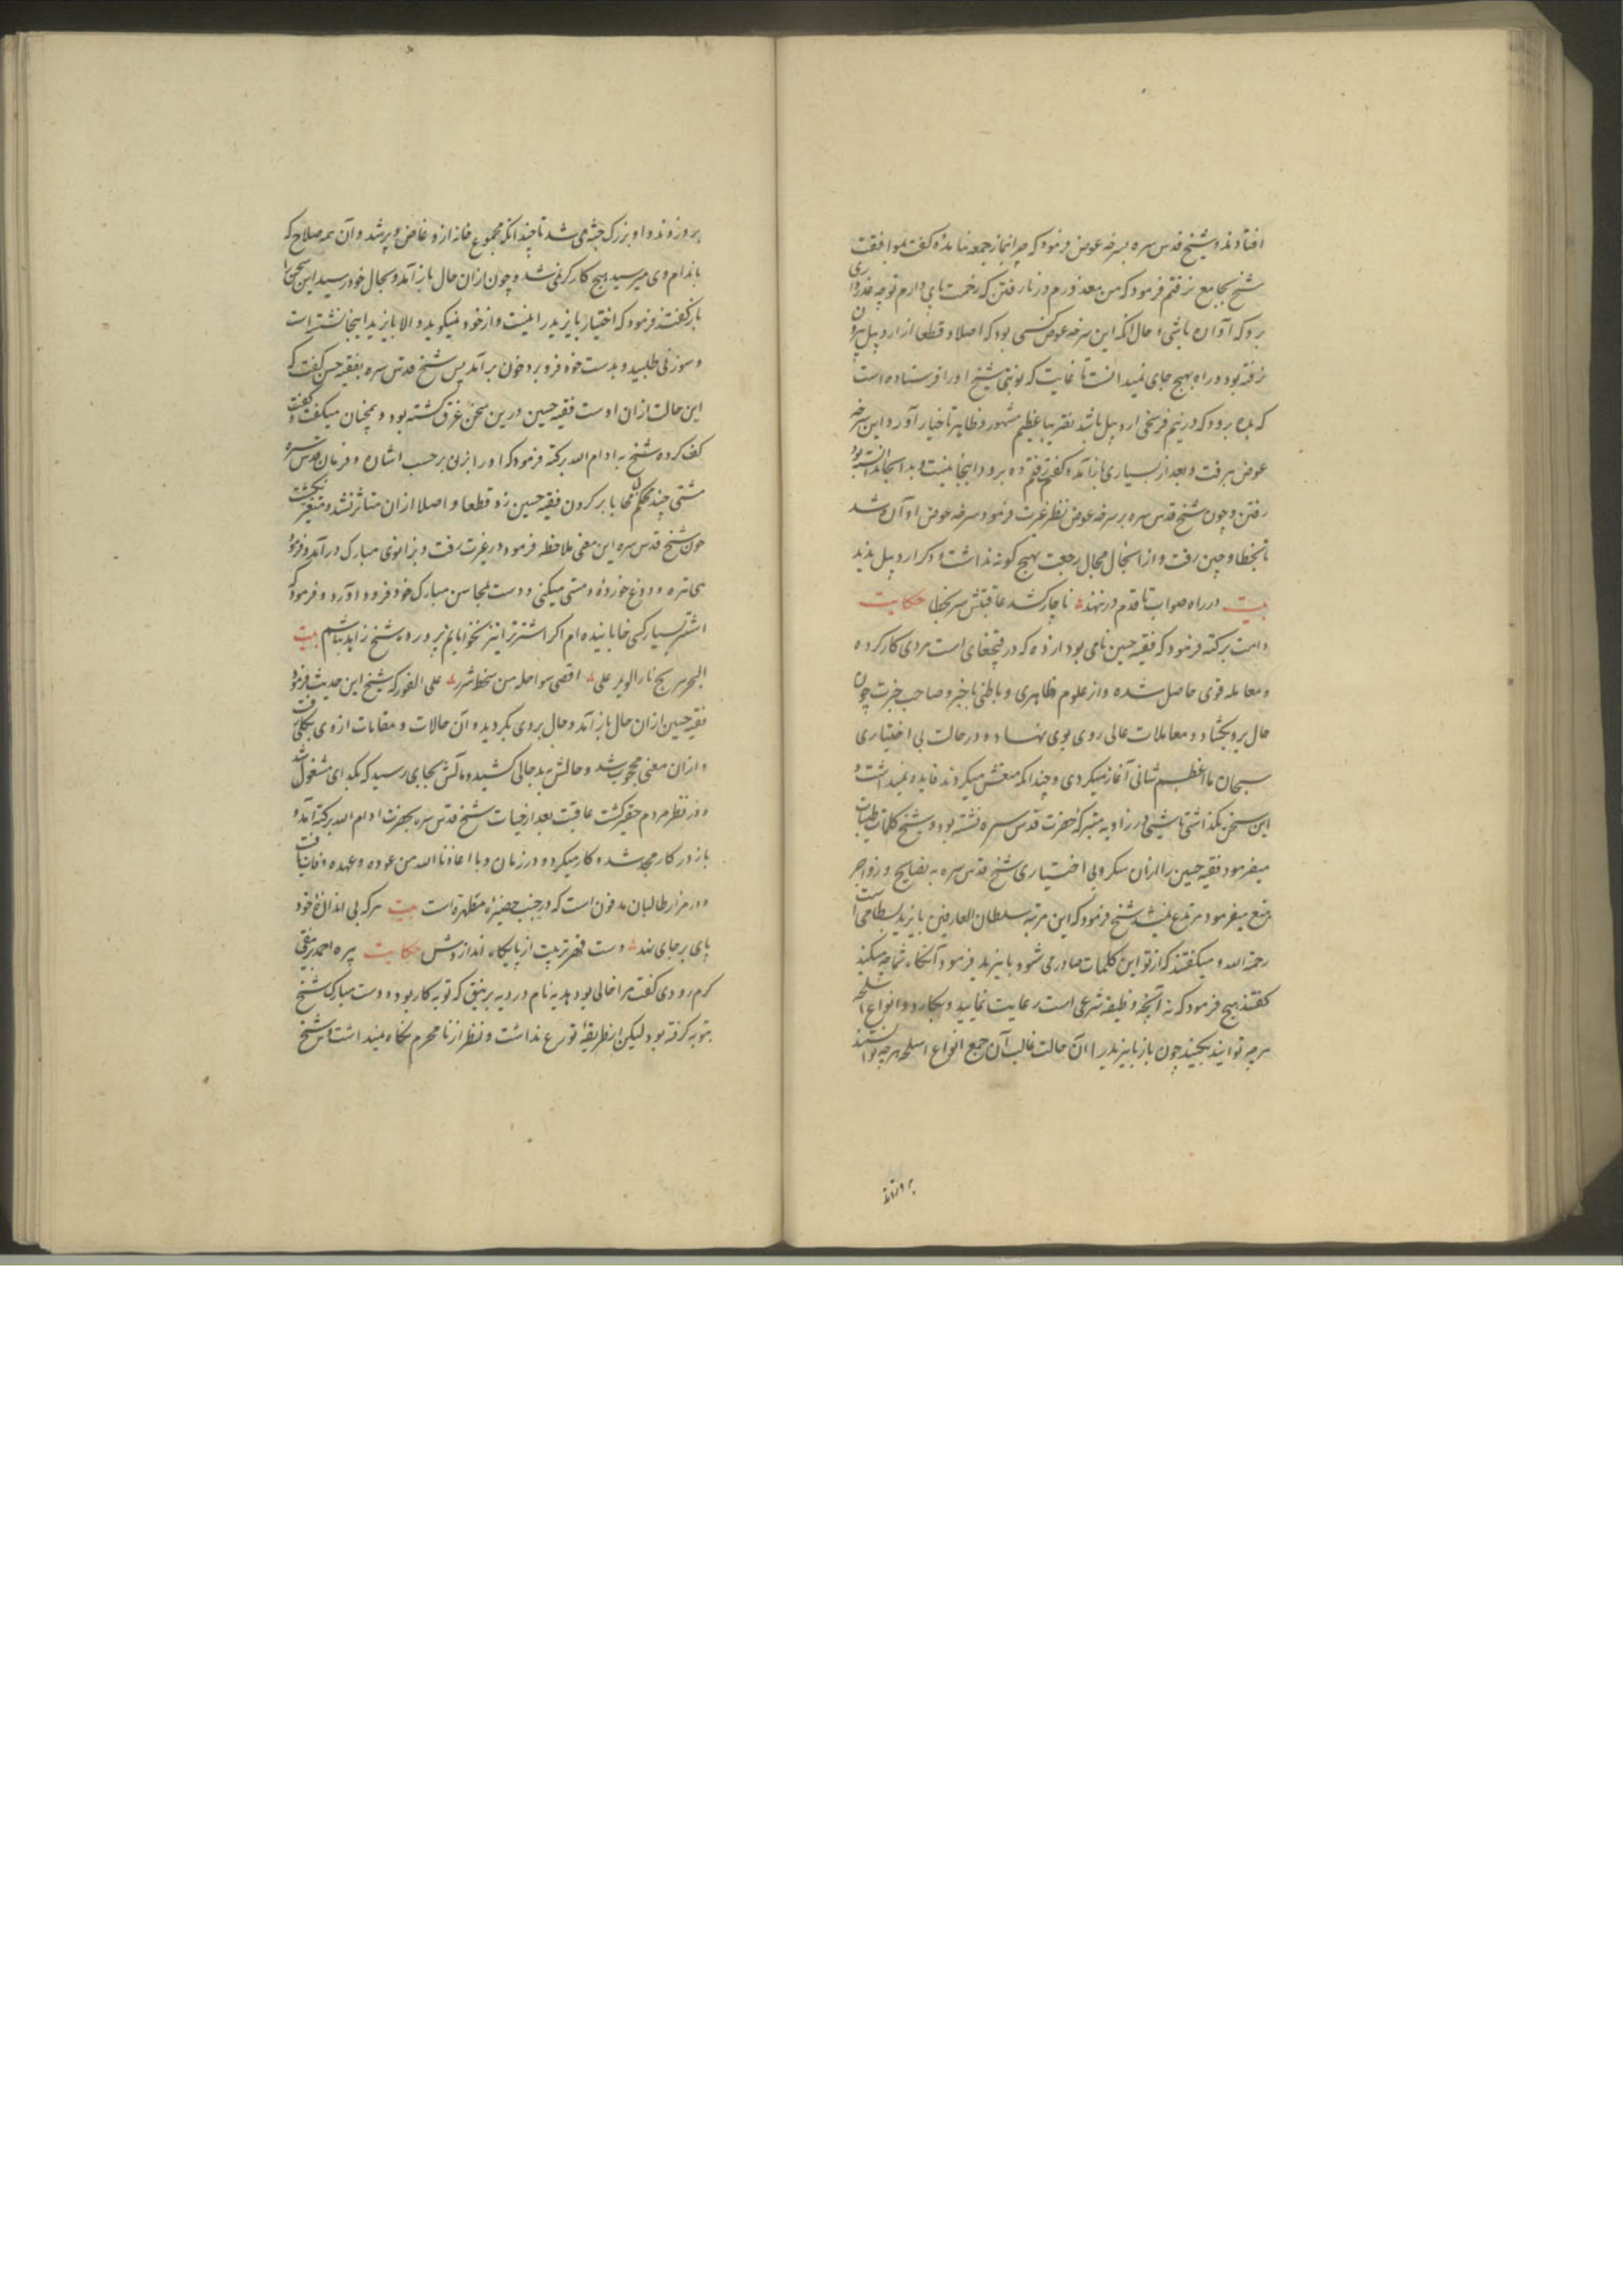 افتادند و شیخ قدس سره بسرفه عوض فرمود که چرا بنماز جمعه نیامدۀ گفت بموافقت
شیخ بجامع نرفتم فرمود که من معذورم در نارفتن که زحمت پای دارم تو چه عذر داری
برو که آواره باشی و حال آنکه این سرفه عوض کسی بود که اصلا و قطعا از اردبیل بیرون
نرفته بود و راه بهیچ جای نمیدانست تا غایت که نوبتی شیخ او را فرستاده است
که بده برود که در نیم فرسخی اردبیل باشد تقریبا عظیم مشهور و ظاهر تا خیار آورد این سرفه
عوض برفت و بعد از بسیاری باز آمد و گفت رفتم ده برود اینجا نیست و بدانجا ندانسته بود
رفتن و چون شیخ قدس سره بر سرفه عوض نظر غیرت فرمود سرفه عوض آواره شد
تا بخطا و چین رفت و از آنجا مجال رجعت بهیچ گونه نداشت و دگر اردبیل ندید
بیت در راه صواب تا قدم در ننهند ناچار کشد عاقبتش سر بخطا حکایت
دامت برکته فرمود که فقیه حسین نامی بود از ده که در قپچغای است مردی کار کرده
و معامله قوی حاصل شده و از علوم ظاهری و باطنی با خبر و صاحب خبرت چون
حال برو بگشاد و معاملات عالی روی بوی نهاد و در حالت بی اختیاری
سبحان ما اعظم شانی آغاز میکردی و چندانکه منعش میکردند فایده نمیداشت و
این سخن بگذاشتی تا شبی در زاویه متبرکه حضرت قدس سره نشسته بود و شیخ کلمات طیبات
میفرمود فقیه حسین را از آن سکر و بی اختیاری شیخ قدس سره به نصایح و زواجر
منع میفرمود مرتدع نمیشد شیخ فرمود که این مرتبه سلطان العارفین بایزید بسطامی است
رحمة الله و میگفتند که از تو این کلمات صادر می شود بایزید فرمود آنگاه شما چه میکنید
گفتند هیچ فرمود که نه آنچه وظیفه شرعی است رعایت نمایید و بکارد و انواع اسلحه
هرچه توانید بکنید چون باز بایزید را آن حالت غالب آمد جمع انواع اسلحه هرچه توانستند
برو زدند و او بزرگ جثه می شد تا چندانکه مجموع خانه ازو غاص و پر شد و آن همه سلاح که
باندام وی میرسید هیچ کارگر نمی شد و چون ازان حال باز آمد و بحال خود رسید این سخن با
باز گفتند فرمود که اختیار بایزید را نیست و از خود نمیگوید و الا بایزید اینجا نشسته است
و سوزنی طلبید و بدست خود فرو برد خون بر آمد پس شیخ قدس سره بفقیه حسین گفت که
این حالت ازان اوست فقیه حسین درین سخن غرق گشته بود و همچنان میگفت و
کف کرده شیخ به ادام الله برکته فرمود که او را بزن بر حسب اشارت و فرمان قدس سره
مشتی چند محکم بی محابا بر گردن فقیه حسین زد قطعا و اصلا ازان متاثر نشد و متغیر نگشت
چون شیخ قدس سره این معنی ملاحظه فرمود در غیرت رفت و بزانوی مبارک در آمد و فرمود
دوغ خوردۀ و مستی میکنی و دست بمحاسن مبارک خود فرود آورد و فرمود که
اشتر بسیار کسی خوابانیده ام اگر اشتر ترا نیز نخوابانم پرورده شیخ زاهد نباشم بیت
علی الفور که شیخ این حدیث فرمود
فقیه حسین ازان حال باز آمد و حال بروی بگردید و آن حالات و مقامات از وی بکلی برفت
و ازان معنی محجوب شد و حالش ببد حالی کشید و مآلش بجایی رسید که بگدای مشغول شد
و در نظر مردم حقیر گشت عاقبت بعد از حیات شیخ قدس سره بحضرت ادام الله برکته آمد و
باز در کار مجد شد و کار میکرد و در زمان وبا اعاذنا الله من عوده و عهده وفات یافت
و در مزار طالبان مدفون است که در جنب حضیرۀ مطهره است بیت هرکه بی اندازۀ خود
پای بر جای نهد دست قهر تربیت از پایگاه اندازدش حکایت پیره احمد برنیقی
گرم رودی گفت مرا خالی بود بدیه نام در دیه برنیق که توبه کار بود و دست مبارک شیخ
بتوبه گرفته بود لیکن از طریقۀ تورع نداشت و نظر از نامحرم نگاه نمیداشت شیخ